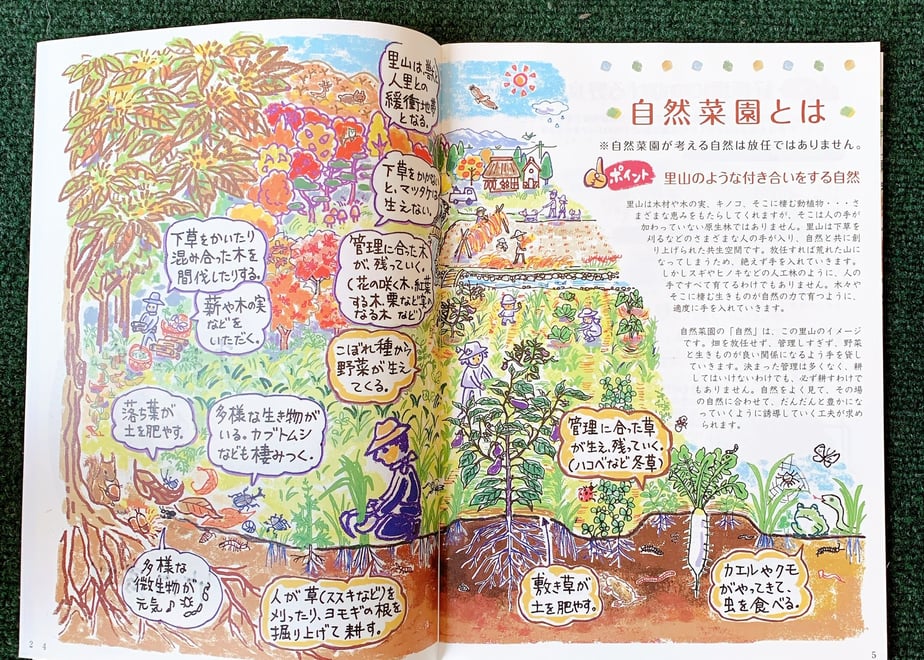 里山は、獣と
人里との
緩衝地帯
となる。
下草をかかない
と、マツタケは
生えない。
下草をかいたり
混み合った木を
間伐したりする。
薪や木の実
などを
いただく。
管理に合った木
が、残っていく。
(花の咲く木、紅葉
する木、栗など実の
なる木 など)
こぼれ種から
野菜が生え
てくる。
落ち葉が
土を肥やす。
多様な生き物が
いる。カブトムシ
なども棲みつく。
多様な
微生物が
元気♪
人が草(ススキなど)を
メリったり、ヨモギの根を
掘り上げて耕す。
2 4
自然菜園とは
※自然菜園が考える自然は放任ではありません。
ポイント 里山のような付き合いをする自然
里山は木材や木の実、キノコ、そこに棲む動植物・・・さ
まざまな恵みをもたらしてくれますが、そこは人の手が
加わっていない原生林ではありません。里山は下草を
刈るなどのさまざまな人の手が入り、自然と共に創
り上げられた共生空間です。放任すれば荒れた山に
なってしまうため、絶えず手を入れていきます。
しかしスギやヒノキなどの人工林のように、人の
手ですべて育てるわけでもありません。木々や
そこに棲む生きものが自然の力で育つように、
適度に手を入れていきます。
自然菜園の「自然」は、この里山のイメージ
です。畑を放任せず、管理しすぎず、野菜
と生きものが良い関係になるよう手を貸し
ていきます。決まった管理は多くなく、耕
してはいけないわけでも、必ず耕すわけで
もありません。自然をよく見て、その場
の自然に合わせて、だんだんと豊かにな
っていくように誘導していく工夫が求め
られます。
管理に合った草
が生え、残っていく。
(ハコベなど冬草)
敷き草が
土を肥やす。
カエルやクモ
がやってきて、
虫を食べる。
5